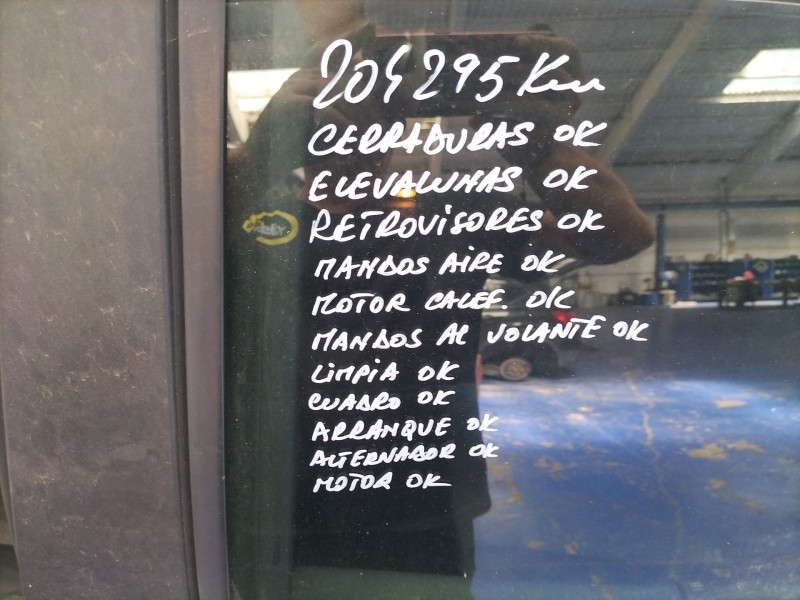 204295 Km
CERRADURAS OK
ELEVALUNAS OK
RETROVISORES OK
MANDOS AIRE OK
MOTOR CALEF. OK
MANDOS AL VOLANTE OK
LIMPIA OK
CUADRO OK
ARRANQUE OK
ALTERNADOR OK
MOTOR OK